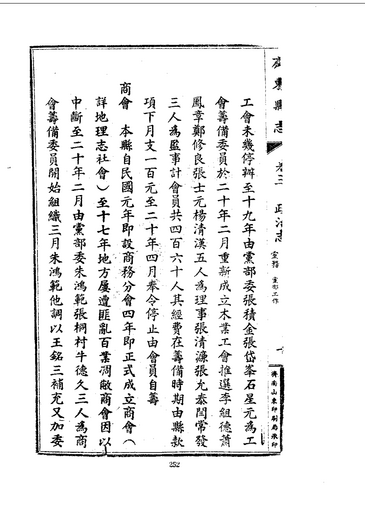 工會未幾停辦至十九年由黨部委張積金張岱峯石星元為工
會籌備委員於二十年二月重新成立木業工會推選李組德蕭
鳳章鄭修良張士元楊清漢五人為理事張清濂張允泰閻常發
三人為監事計會員共四百六十人其經費在籌備時期由縣款
項下月支一百元至二十年四月奉令停止由會員自籌
商會　本縣自民國元年即設商務分會四年即正式成立商會（
詳地理志社會）至十七年地方屢遭匪亂百業凋敝商會因以
中斷至二十年二月由黨部委朱鴻範張桐村牛德久三人為商
會籌備委員開始組織三月朱鴻範他調以王銘三補充又加委
縣志
卷三
政治志
黨務
濟南山東印刷局承印
252